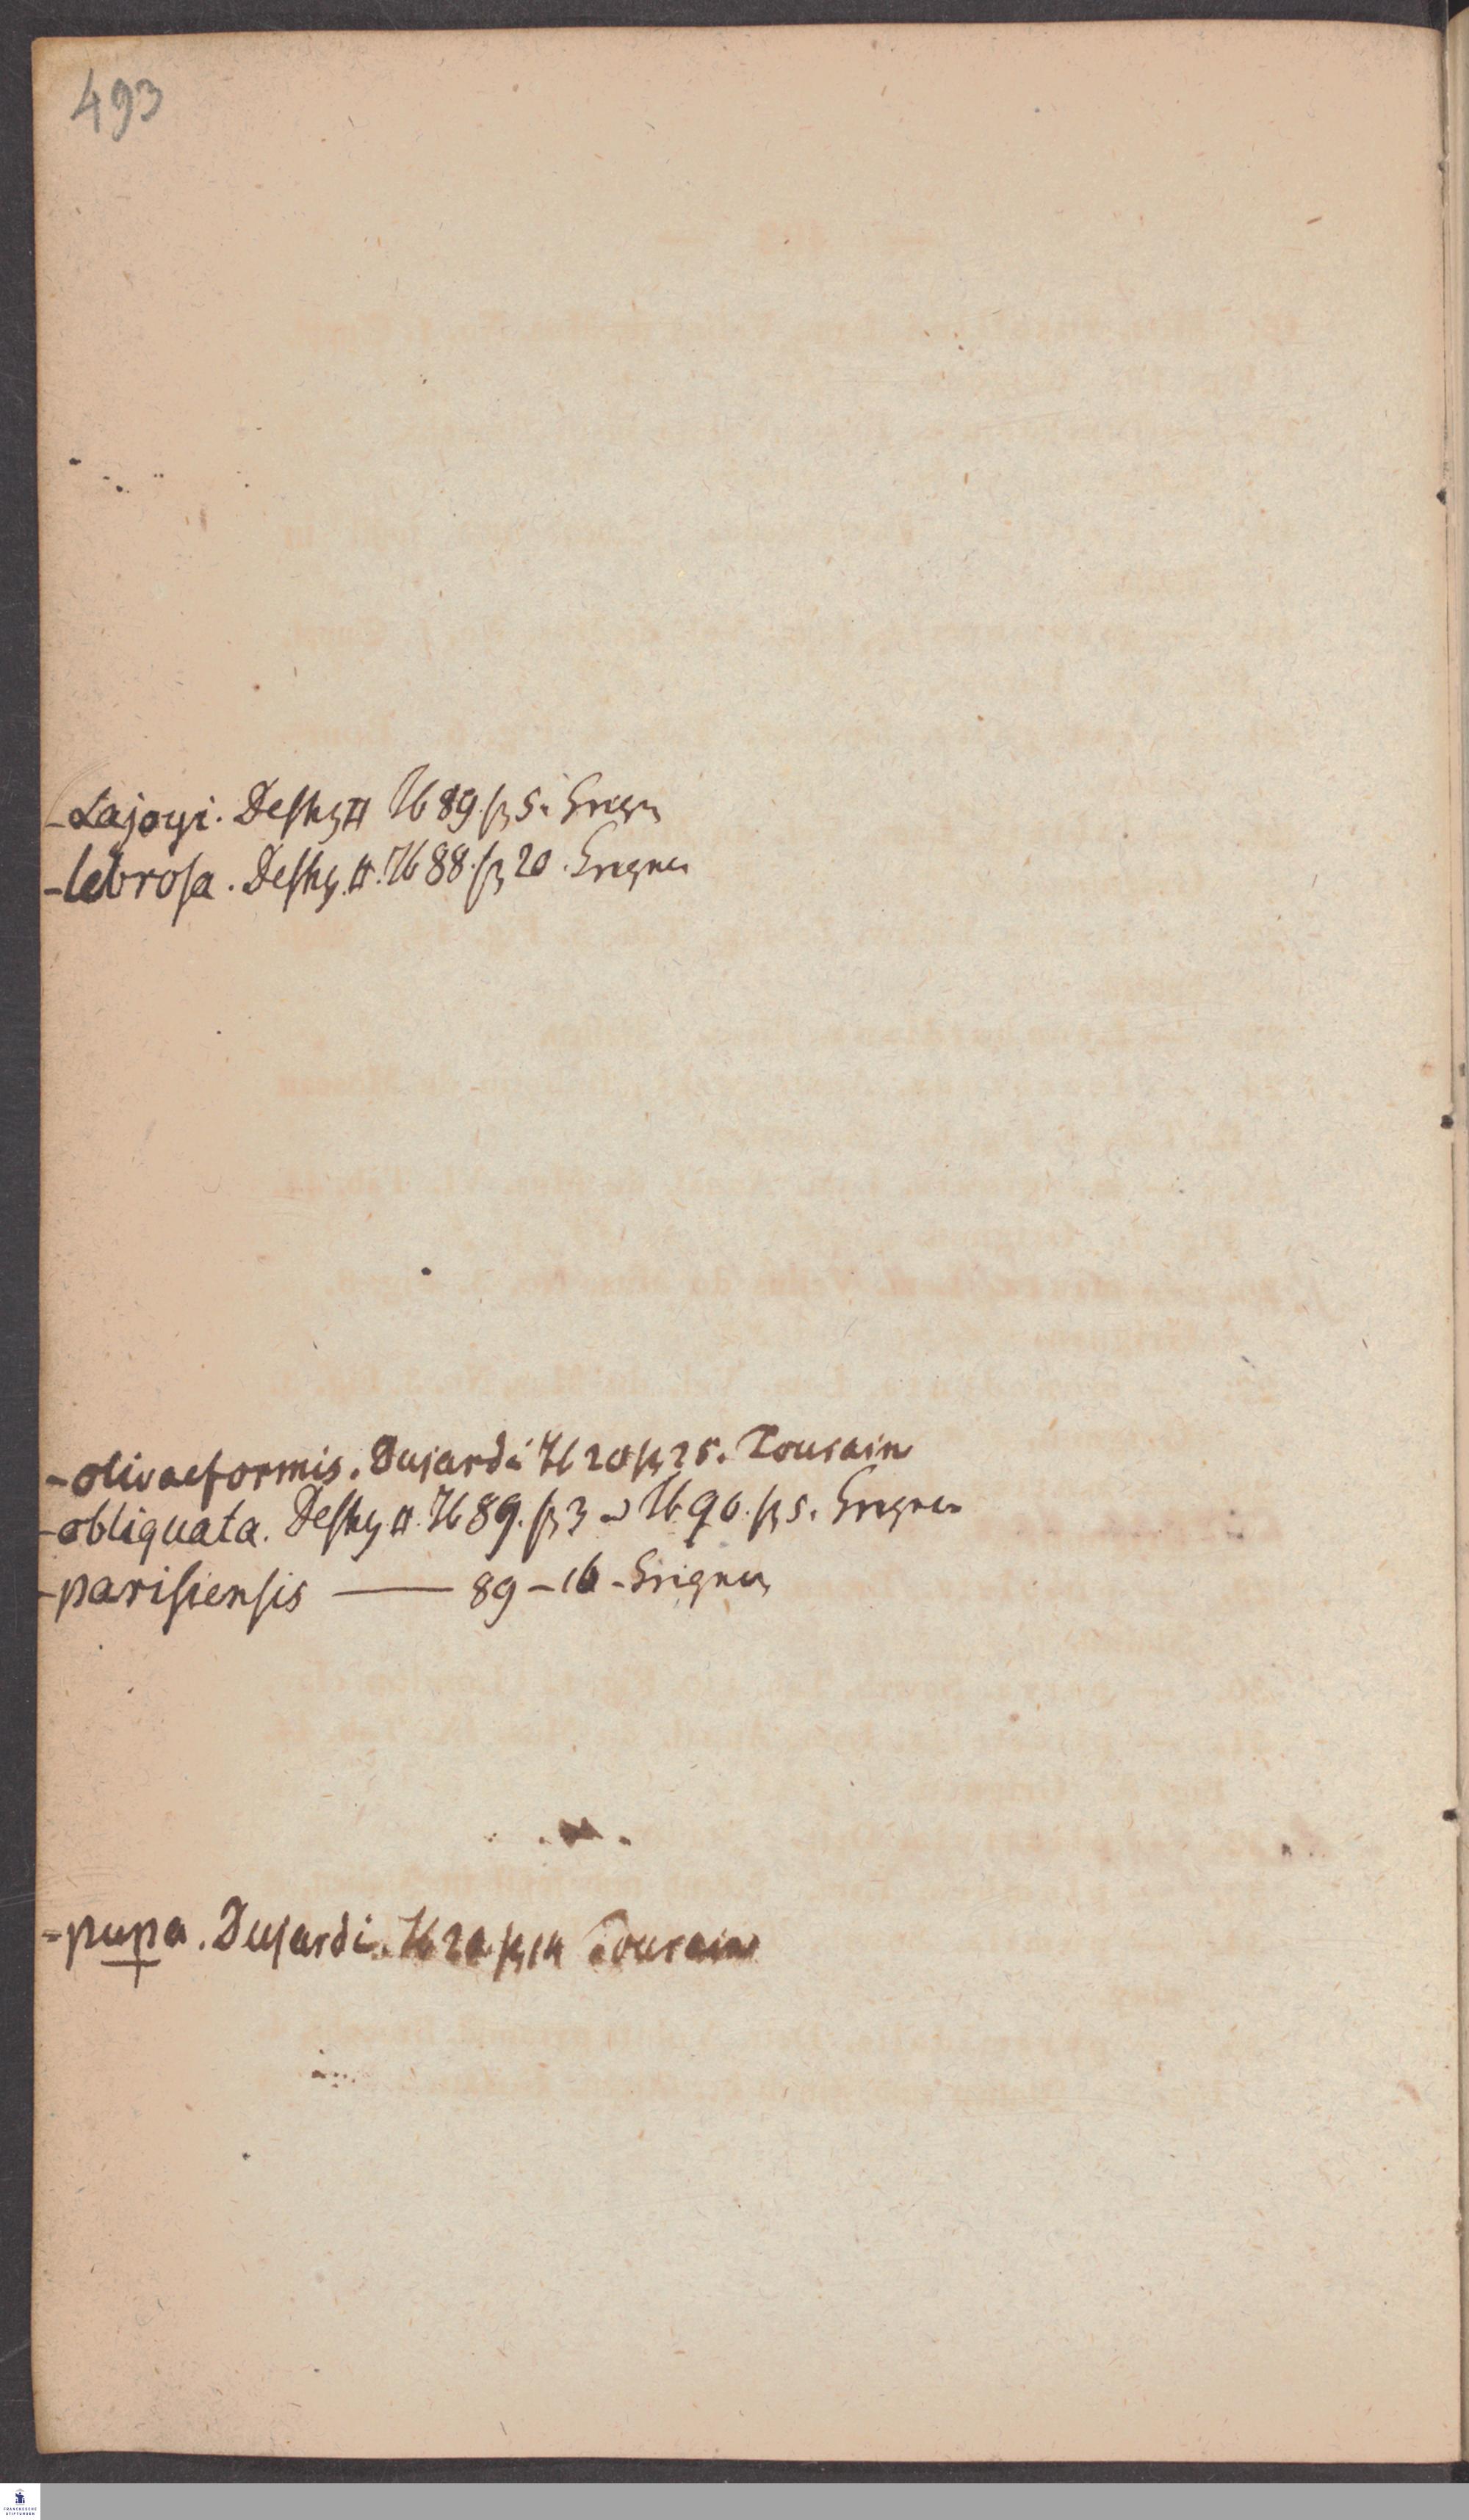 493
- Lajoyi. Deshy II Tb 89. fg 5. Grign
- lebrosa. Deshy. II. Tb 88. fg 20. Grignon
- olivaeformis. Dujardi Tb 20 fg 25. Tourain
- obliquata. Deshy II. Tb 89. fg 3 Tb 90. fg 5. Grignon
- parisiensis — 89 - 16 - Grignon
- pupa. Dujardi. Tb 20 fg Tourain
FRANCKESCHE
STIFTUNGEN